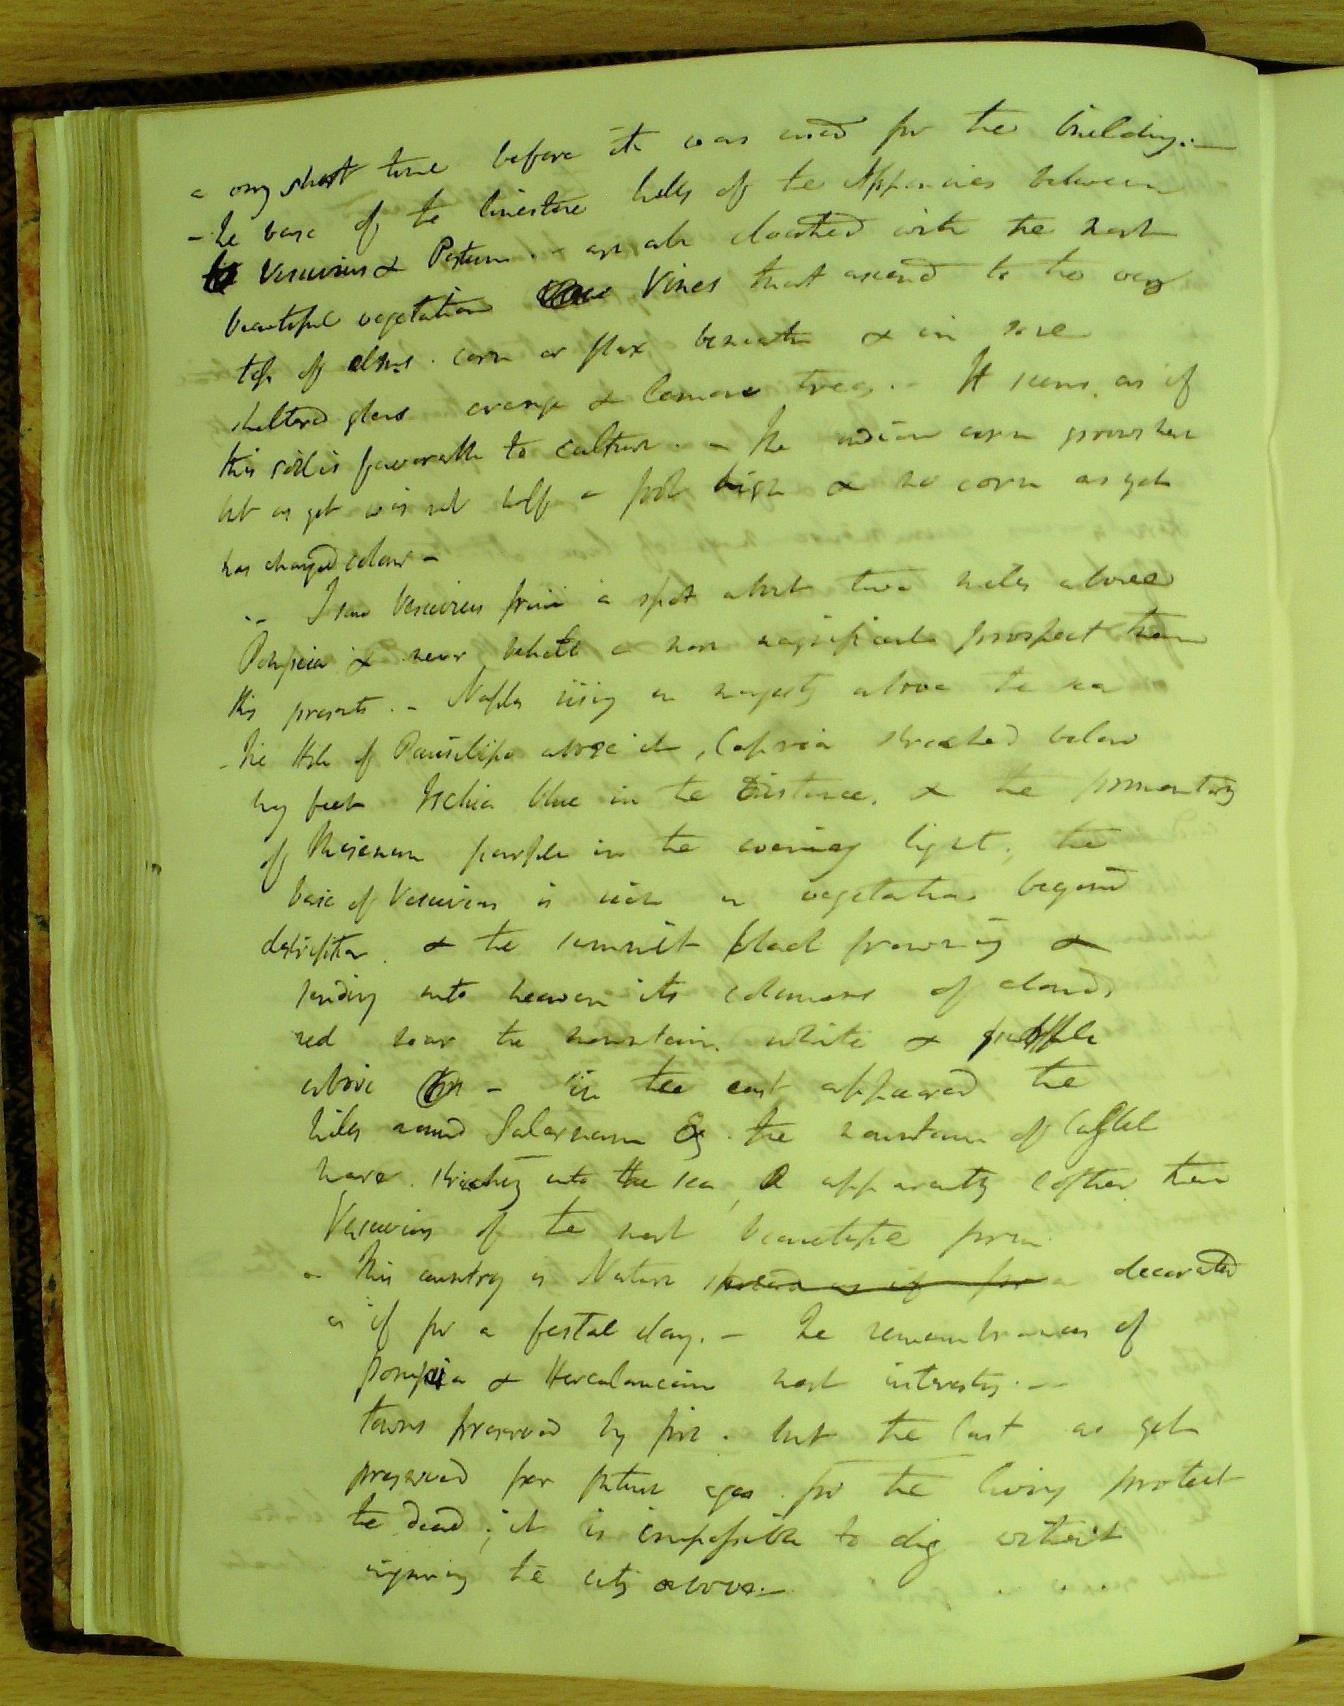 a very short time before it was used for the building. —
- The base of the limestone hills of the Appenines between
Vesuvius & Pestum. - are all cloathed with the most
beautiful vegetation Vines that ascend to the very
top of elms. corn or flax beneath & in some
sheltered glens orange & lemon trees. - It seems as if
this soil is favorable to culture. - The indian corn grows here
but as yet was not half a foot high & no corn as yet
has changed colour -
.. I saw Vesuvius from a spot about two miles above
Pompeia & never beheld a more magnificent prospect than
this presents. - Naples rising in majesty above the sea
- The Hill of Pausilipo above it, Capria stretched below
my feet Ischia blue in the distance. & the promontory
of Misenum purple in the evening light; the
base of Vesuvius is rich in vegetation beyond
description. & the summit black frowning &
sending into heaven its columns of clouds
red near the mountain. white & purple
above - in the east appeared the
hills round Salernum & the mountain of Castel
mare. stretching into the sea, & apparently loftier than
Vesuvius of the most beautiful form
- This country is Nature spread as if for a decorated
as if for a festal day. - The remembrances of
pompeia & Herculaneum most interesting. —
towns preserved by fire. but the last as yet
preserved for future ages. for the living protect
the dead; it is impossible to dig without
injuring the city above. —